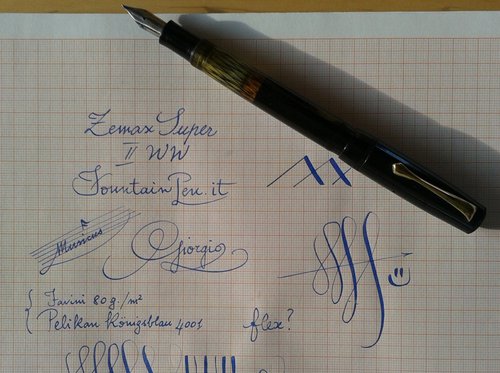 Zemax Super
II WW
FountainPen.it
Munus
Giorgio
Favini 80 g./m²
Pelikan Königsblau 4001
flex?